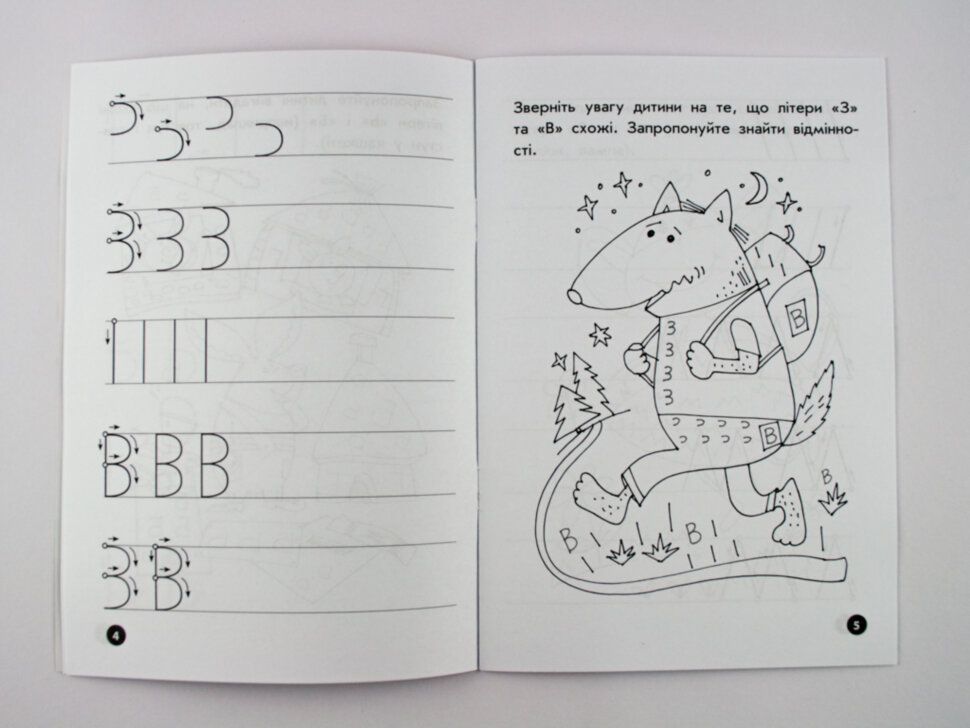 З З З
В В В
З В
4
Зверніть увагу дитини на те, що літери «З»
та «В» схожі. Запропонуйте знайти відмінно-
сті.
В
З
З
З
З
В
В
В В
5